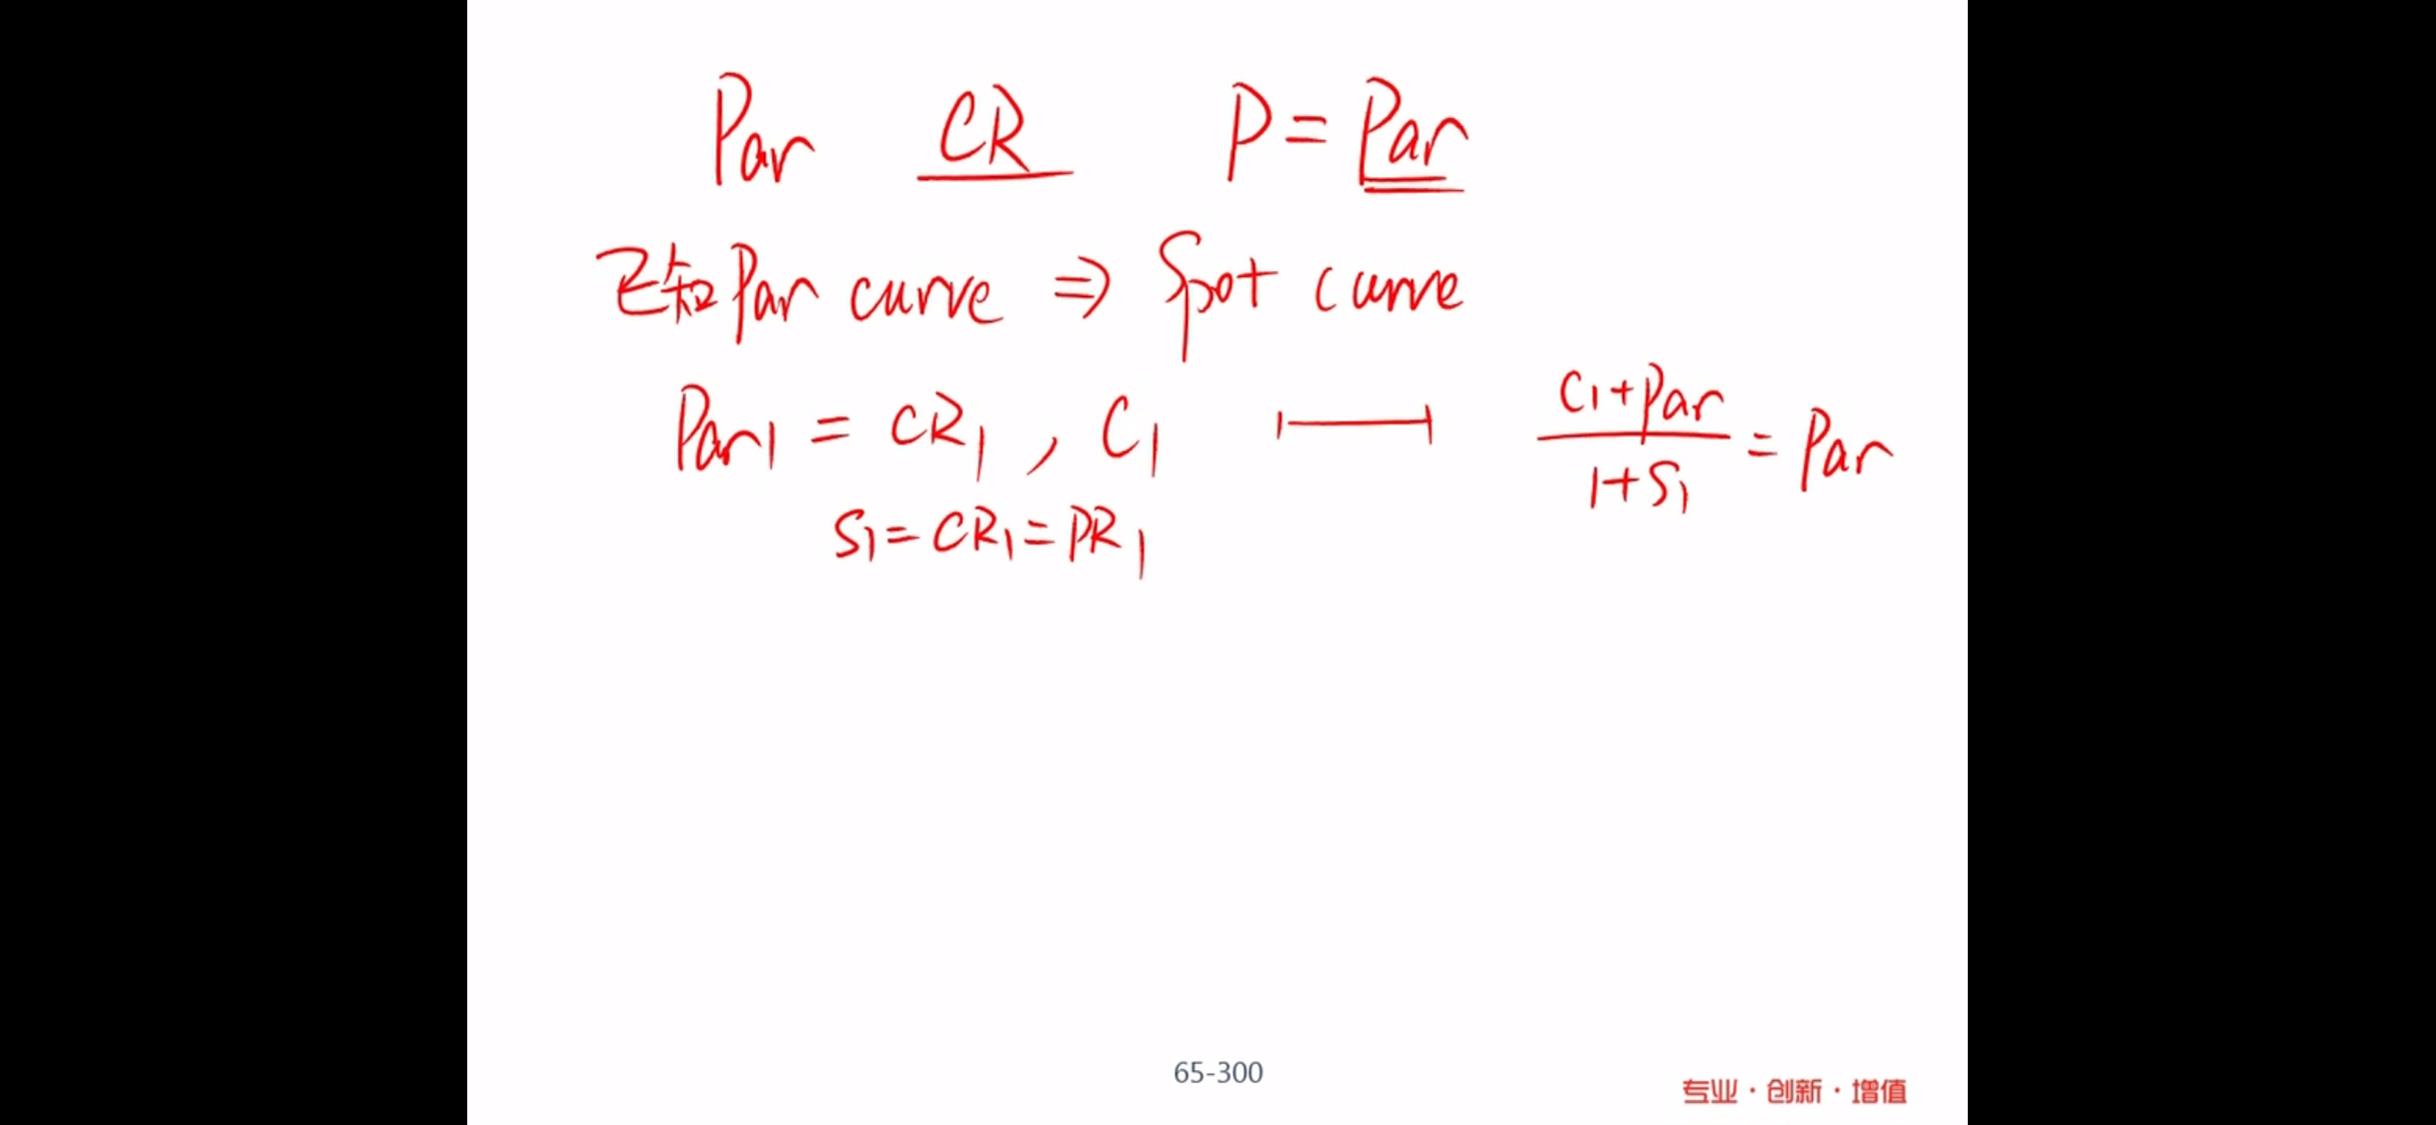 Par CR P = Par
已知 Par curve ⇒ Spot curve
Par1 = CR1 , C1
C1+Par
1+S1
= Par
S1 = CR1 = PR1
65-300
专业・创新・增值